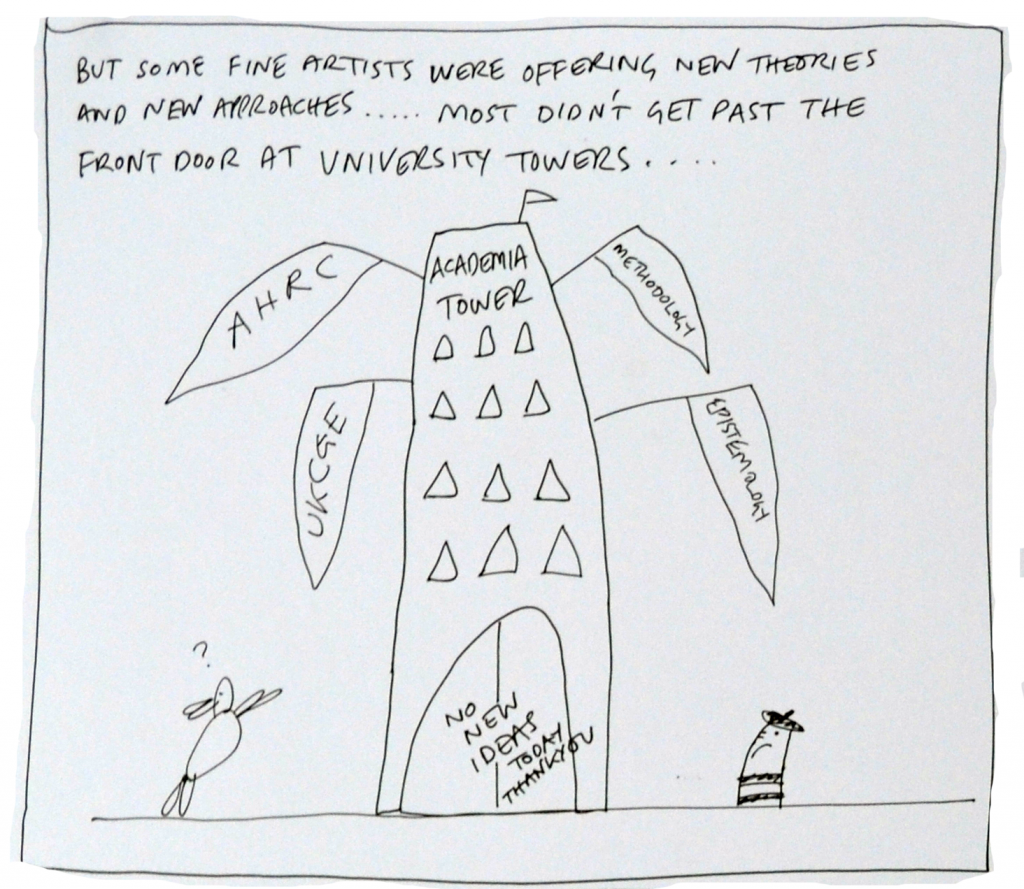 BUT SOME FINE ARTISTS WERE OFFERING NEW THEORIES
AND NEW APPROACHES ..... MOST DIDN'T GET PAST THE
FRONT DOOR AT UNIVERSITY TOWERS .....
ACADEMIA
TOWER
AHRC
METHODOLOGY
UKCGE
EPISTEMOLOGY
?
NO
NEW
IDEAS
TODAY
THANKYOU